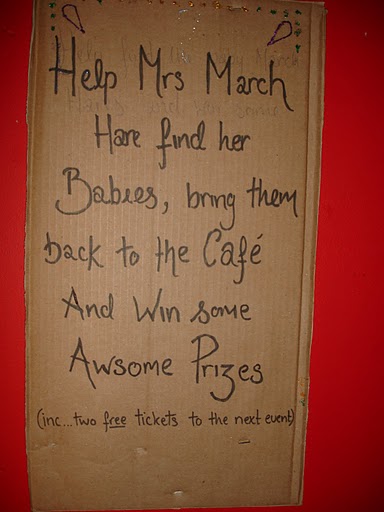 Help Mrs March
Hare find her
Babies, bring them
back to the Café
And Win some
Awsome Prizes
(inc...two free tickets to the next event)